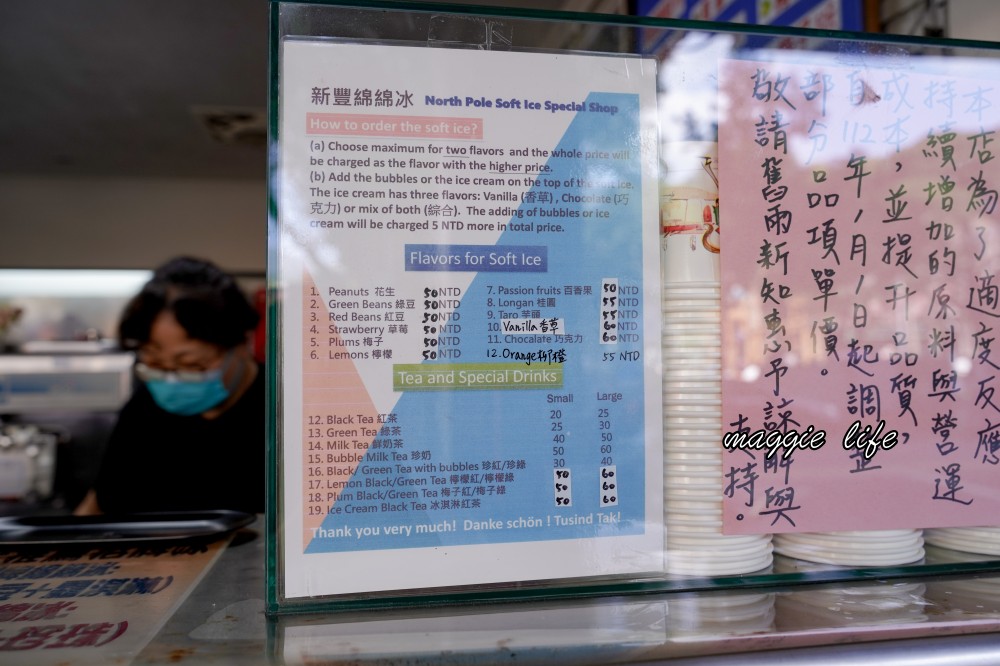 新豐綿綿冰 North Pole Soft Ice Special Shop
How to order the soft ice?
(a) Choose maximum for two flavors and the whole price will
be charged as the flavor with the higher price.
(b) Add the bubbles or the ice cream on the top of the soft ice.
The ice cream has three flavors: Vanilla (香草) , Chocolate (巧
克力) or mix of both (綜合). The adding of bubbles or ice
cream will be charged 5 NTD more in total price.
Flavors for Soft Ice
1. Peanuts 花生 50 NTD
2. Green Beans 綠豆 50 NTD
3. Red Beans 紅豆 50 NTD
4. Strawberry 草莓 50 NTD
5. Plums 梅子 50 NTD
6. Lemons 檸檬 50 NTD
7. Passion fruits 百香果 50 NTD
8. Longan 桂圓 55 NTD
9. Taro 芋頭 55 NTD
10. Vanilla 香草 60 NTD
11. Chocolate 巧克力 60 NTD
12. Orange 柳橙 55 NTD
Tea and Special Drinks
Small Large
12. Black Tea 紅茶 20 25
13. Green Tea 綠茶 25 30
14. Milk Tea 鮮奶茶 40 50
15. Bubble Milk Tea 珍奶 50 60
16. Black/ Green Tea with bubbles 珍紅/珍綠 30 40
17. Lemon Black/Green Tea 檸檬紅/檸檬綠 50 60
18. Plum Black/Green Tea 梅子紅/梅子綠 50 60
19. Ice Cream Black Tea 冰淇淋紅茶 50 60
Thank you very much! Danke schön ! Tusind Tak!
本店為了適度反應
持續增加的原料與營運
成本，並提升品質，
自112年1月1日起調整
部分品項單價。
敬請舊雨新知惠予諒解與
支持。
maggie life